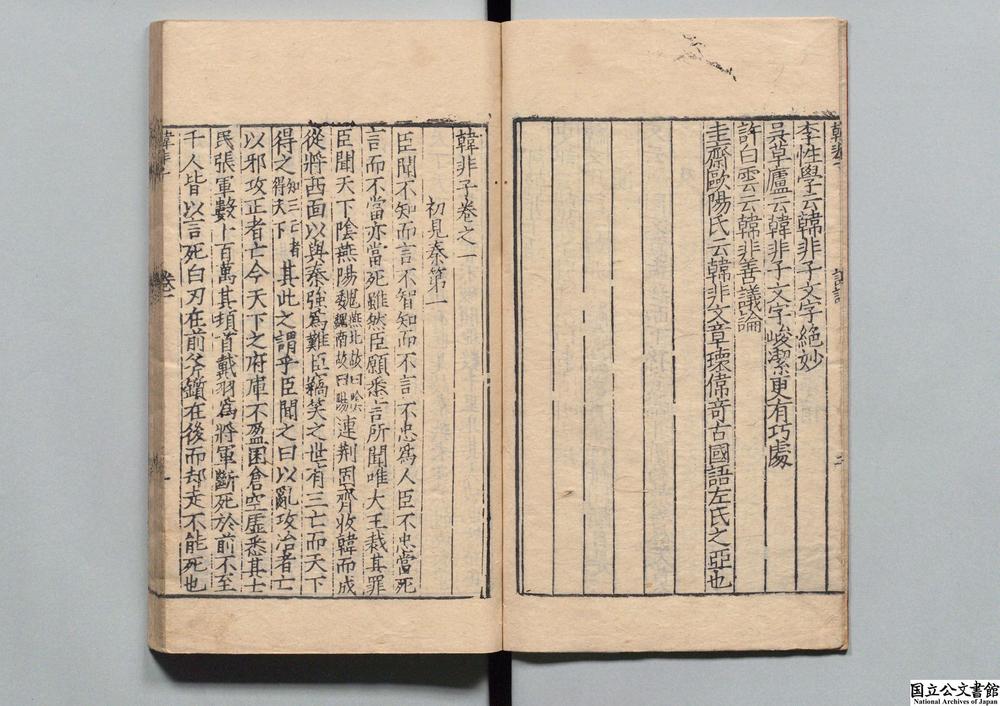 李性學云韓非子文字絕妙
吳草廬云韓非子文字峻潔更有巧處
許白雲云韓非善議論
圭齋歐陽氏云韓非文章瓌偉奇古國語左氏之亞也
韓非子卷之一
初見秦第一
臣聞不知而言不智知而不言不忠為人臣不忠當死
言而不當亦當死雖然臣願悉言所聞唯大王裁其罪
臣聞天下陰燕陽魏燕北故曰陰魏南故曰陽連荊固齊收韓而成
從將西面以與秦強為難臣竊笑之世有三亡而天下
得之知三亡者得天下其此之謂乎臣聞之曰以亂攻治者亡
以邪攻正者亡今天下之府庫不盈囷倉空虛悉其士
民張軍數十百萬其頓首戴羽為將軍斷死於前不至
千人皆以言死白刃在前斧鑕在後而却走不能死也
韓非子
卷一
一
国立公文書館
National Archives of Japan